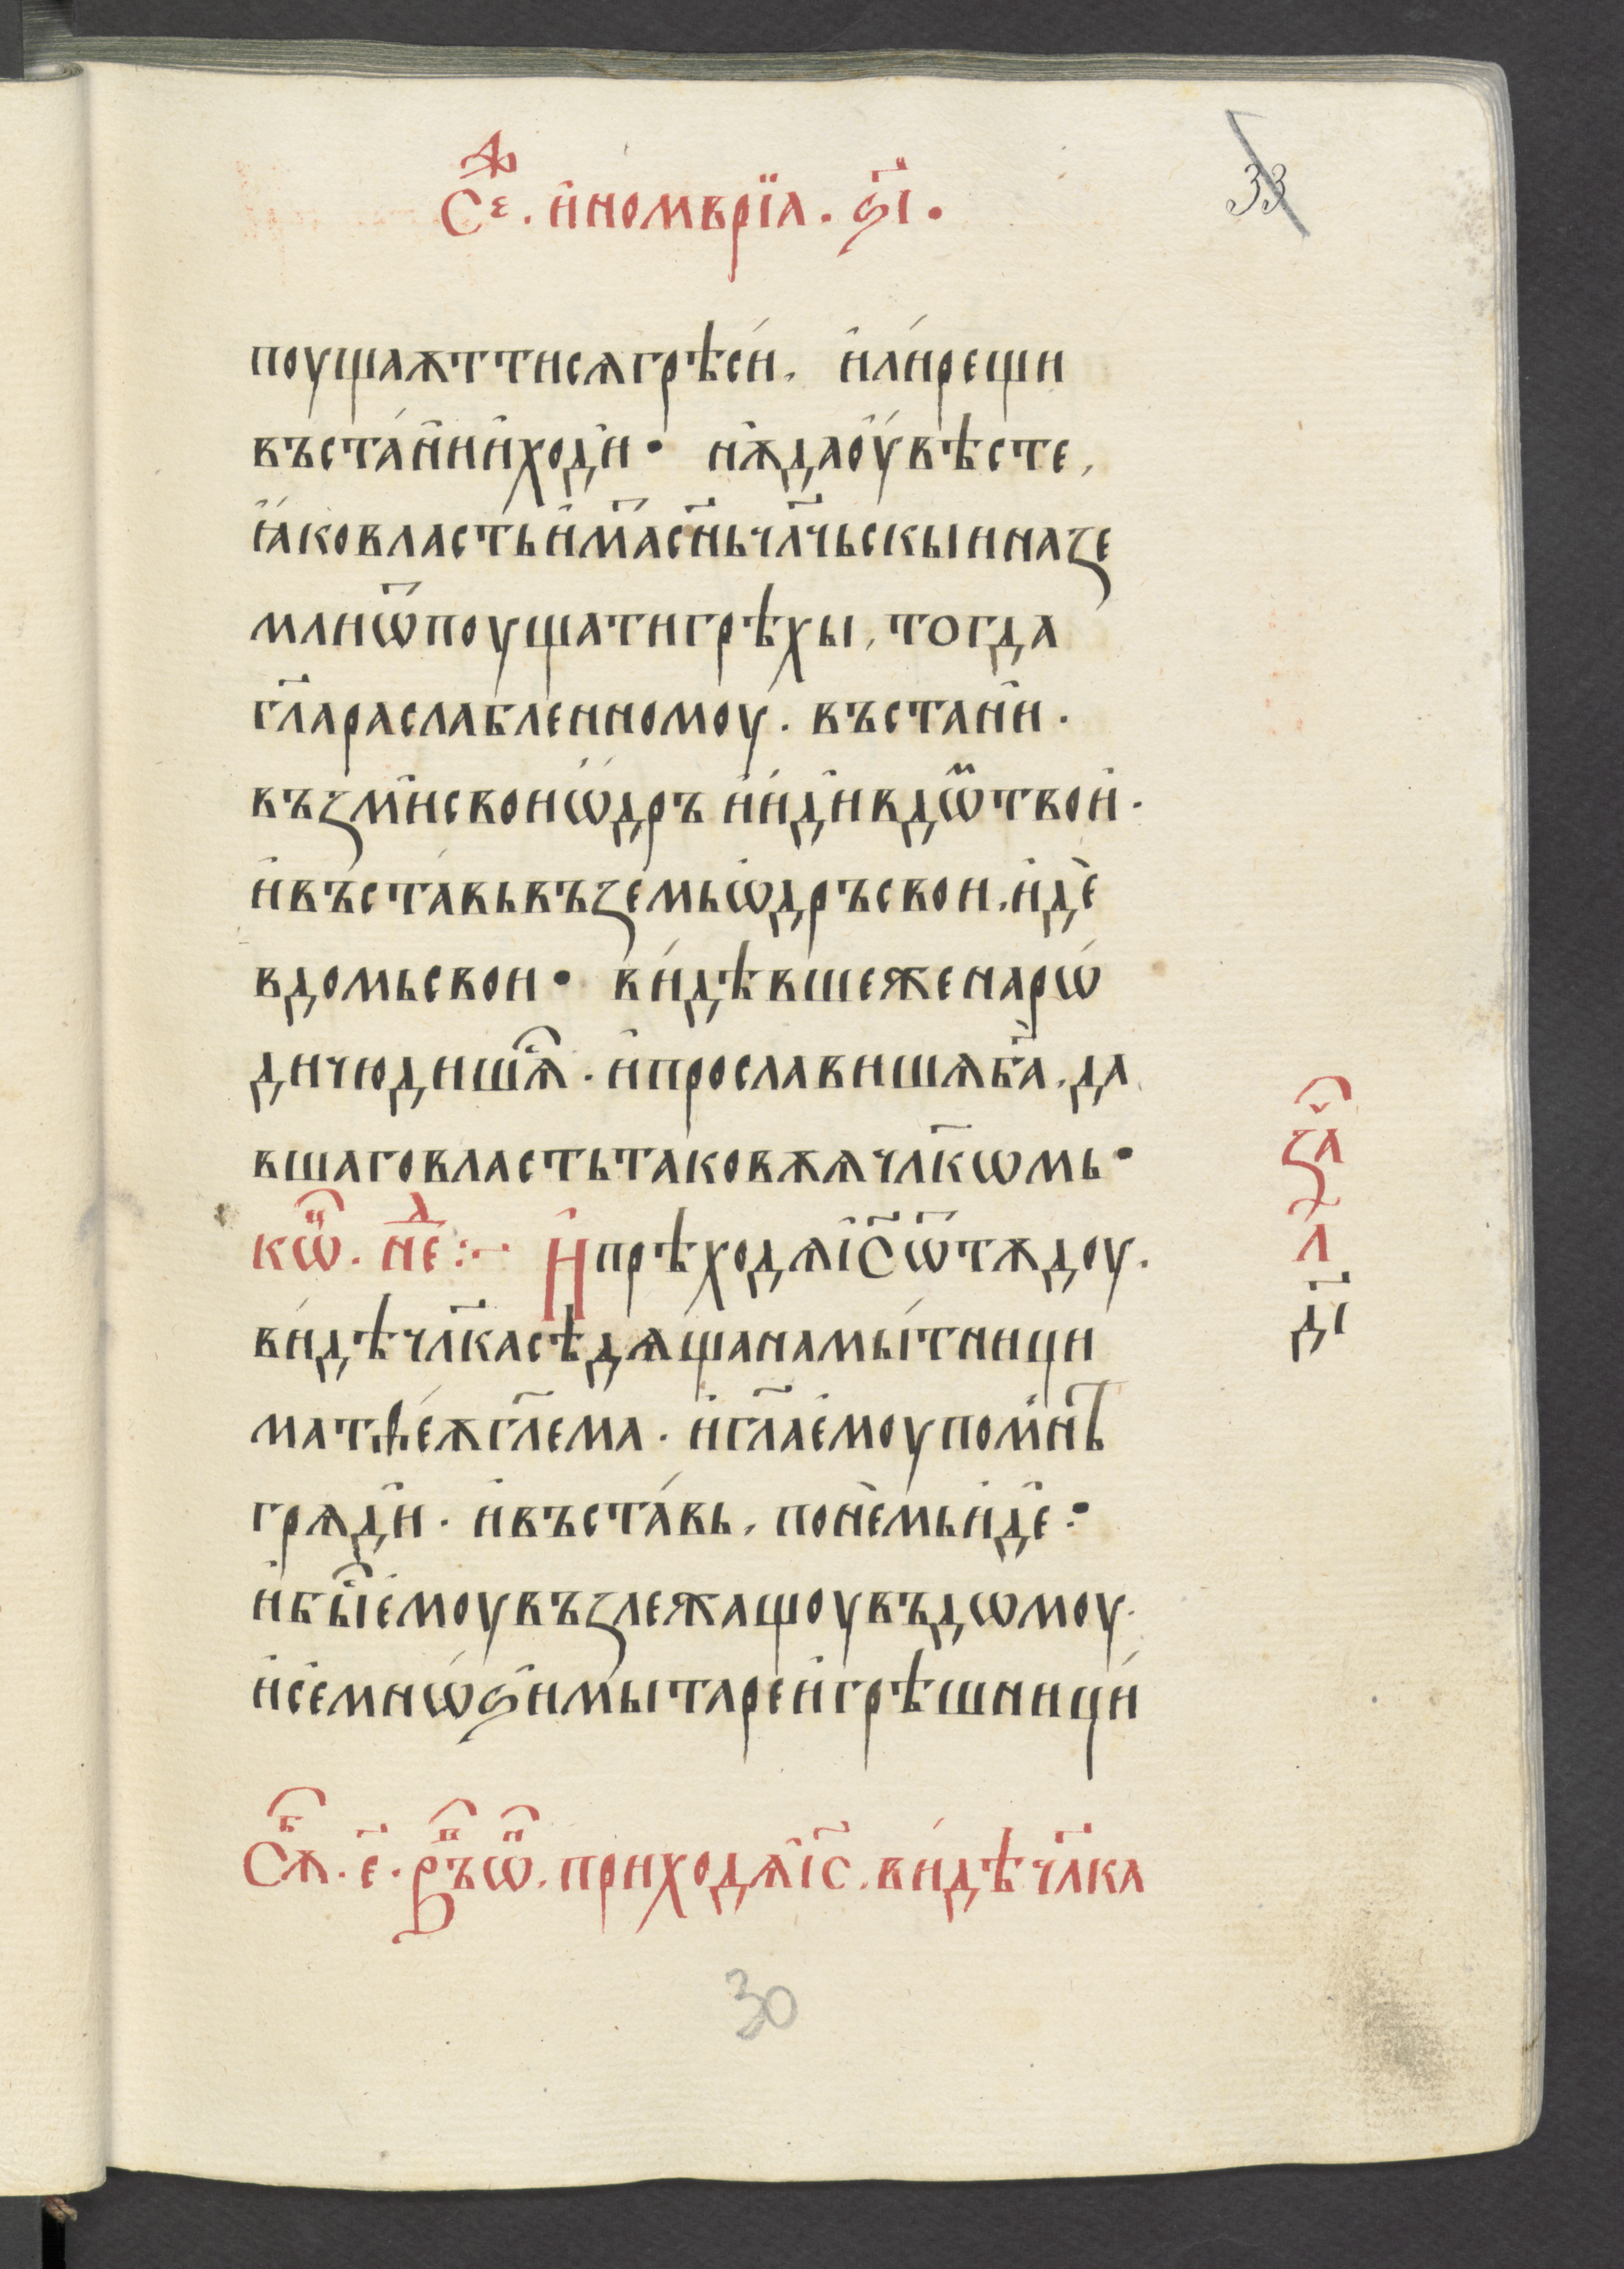 С҃е. и҆номврїа. ѕ҃і.
33
поущаѫт тисѧ грѣсѝ, и҆лѝ рещи
въста́ни и҆ ходи҆• нѫ да оу҆вѣсте,
ꙗ҆ко власть и҆ма̃ с҃нь чл҃чьскыи на зе
мли ѿпоущати грѣхы, тогда
гл҃а раслабленномоу. въстани҆.
възми҆ свои ѡ҆дръ и҆ иди в дѡ҆м твои҆.
и҆ въста́вь въземь ѡдръ свои, иде҆
в домь свои• ви́дѣвше же нарѡ
ди чюдишѧⷭ. и҆ прославишѧ б҃а, да
вшаго власть таковѫѧ чл҃кѡмь•
кѡⷩ. нⷣе :~ И҆ прѣходѧ і҆с҃ ѿтѫдоу.
ви́дѣ чл҃ка сѣдѧща на мы́тници
матѳе́ѫ гл҃ема. и҆ гл҃а е҆моу по мнѣ
грѧди҆. и҆ въста́вь, по не҆мь иде҆ :•
и҆ быⷭ е҆моу възлежащоу въ дѡмоу.
и҆ се҆ мнѡѕи҆ мытаре и҆ грѣшници
за҃ч
л
д҃і
Сѫⷠ. є҃. врⷨъѡⷩ. приходѧ і҆с҃. ви́дѣ чл҃ка
30